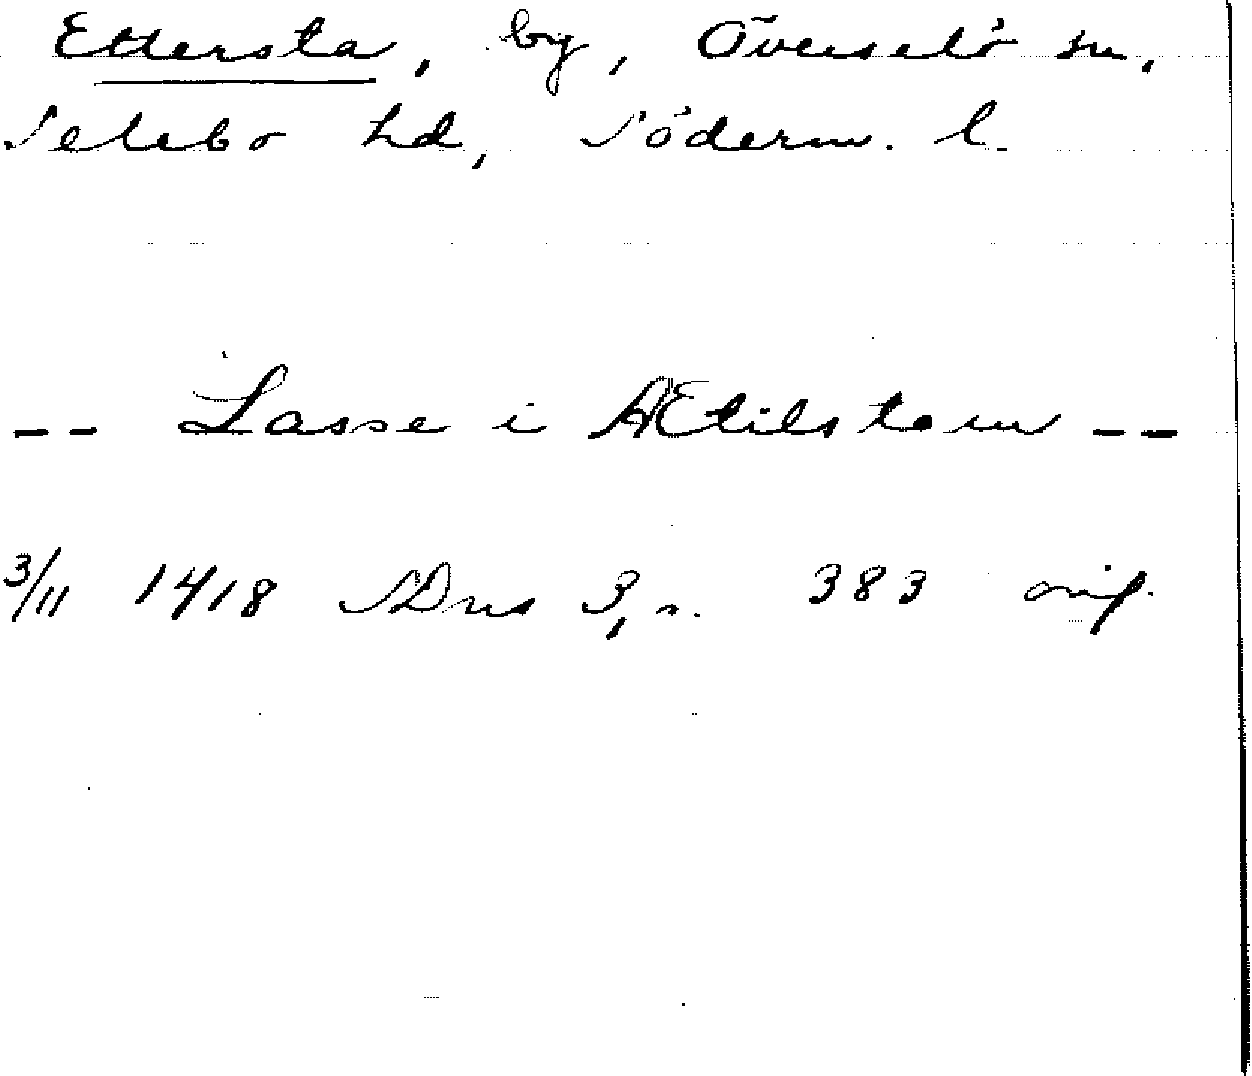 Ettersta, by, Överselö sn,
Selebo hd, Söderm. l.
-- Lasse i Ætilstom --
3/11 1418 SDns 3, n. 383 orig.